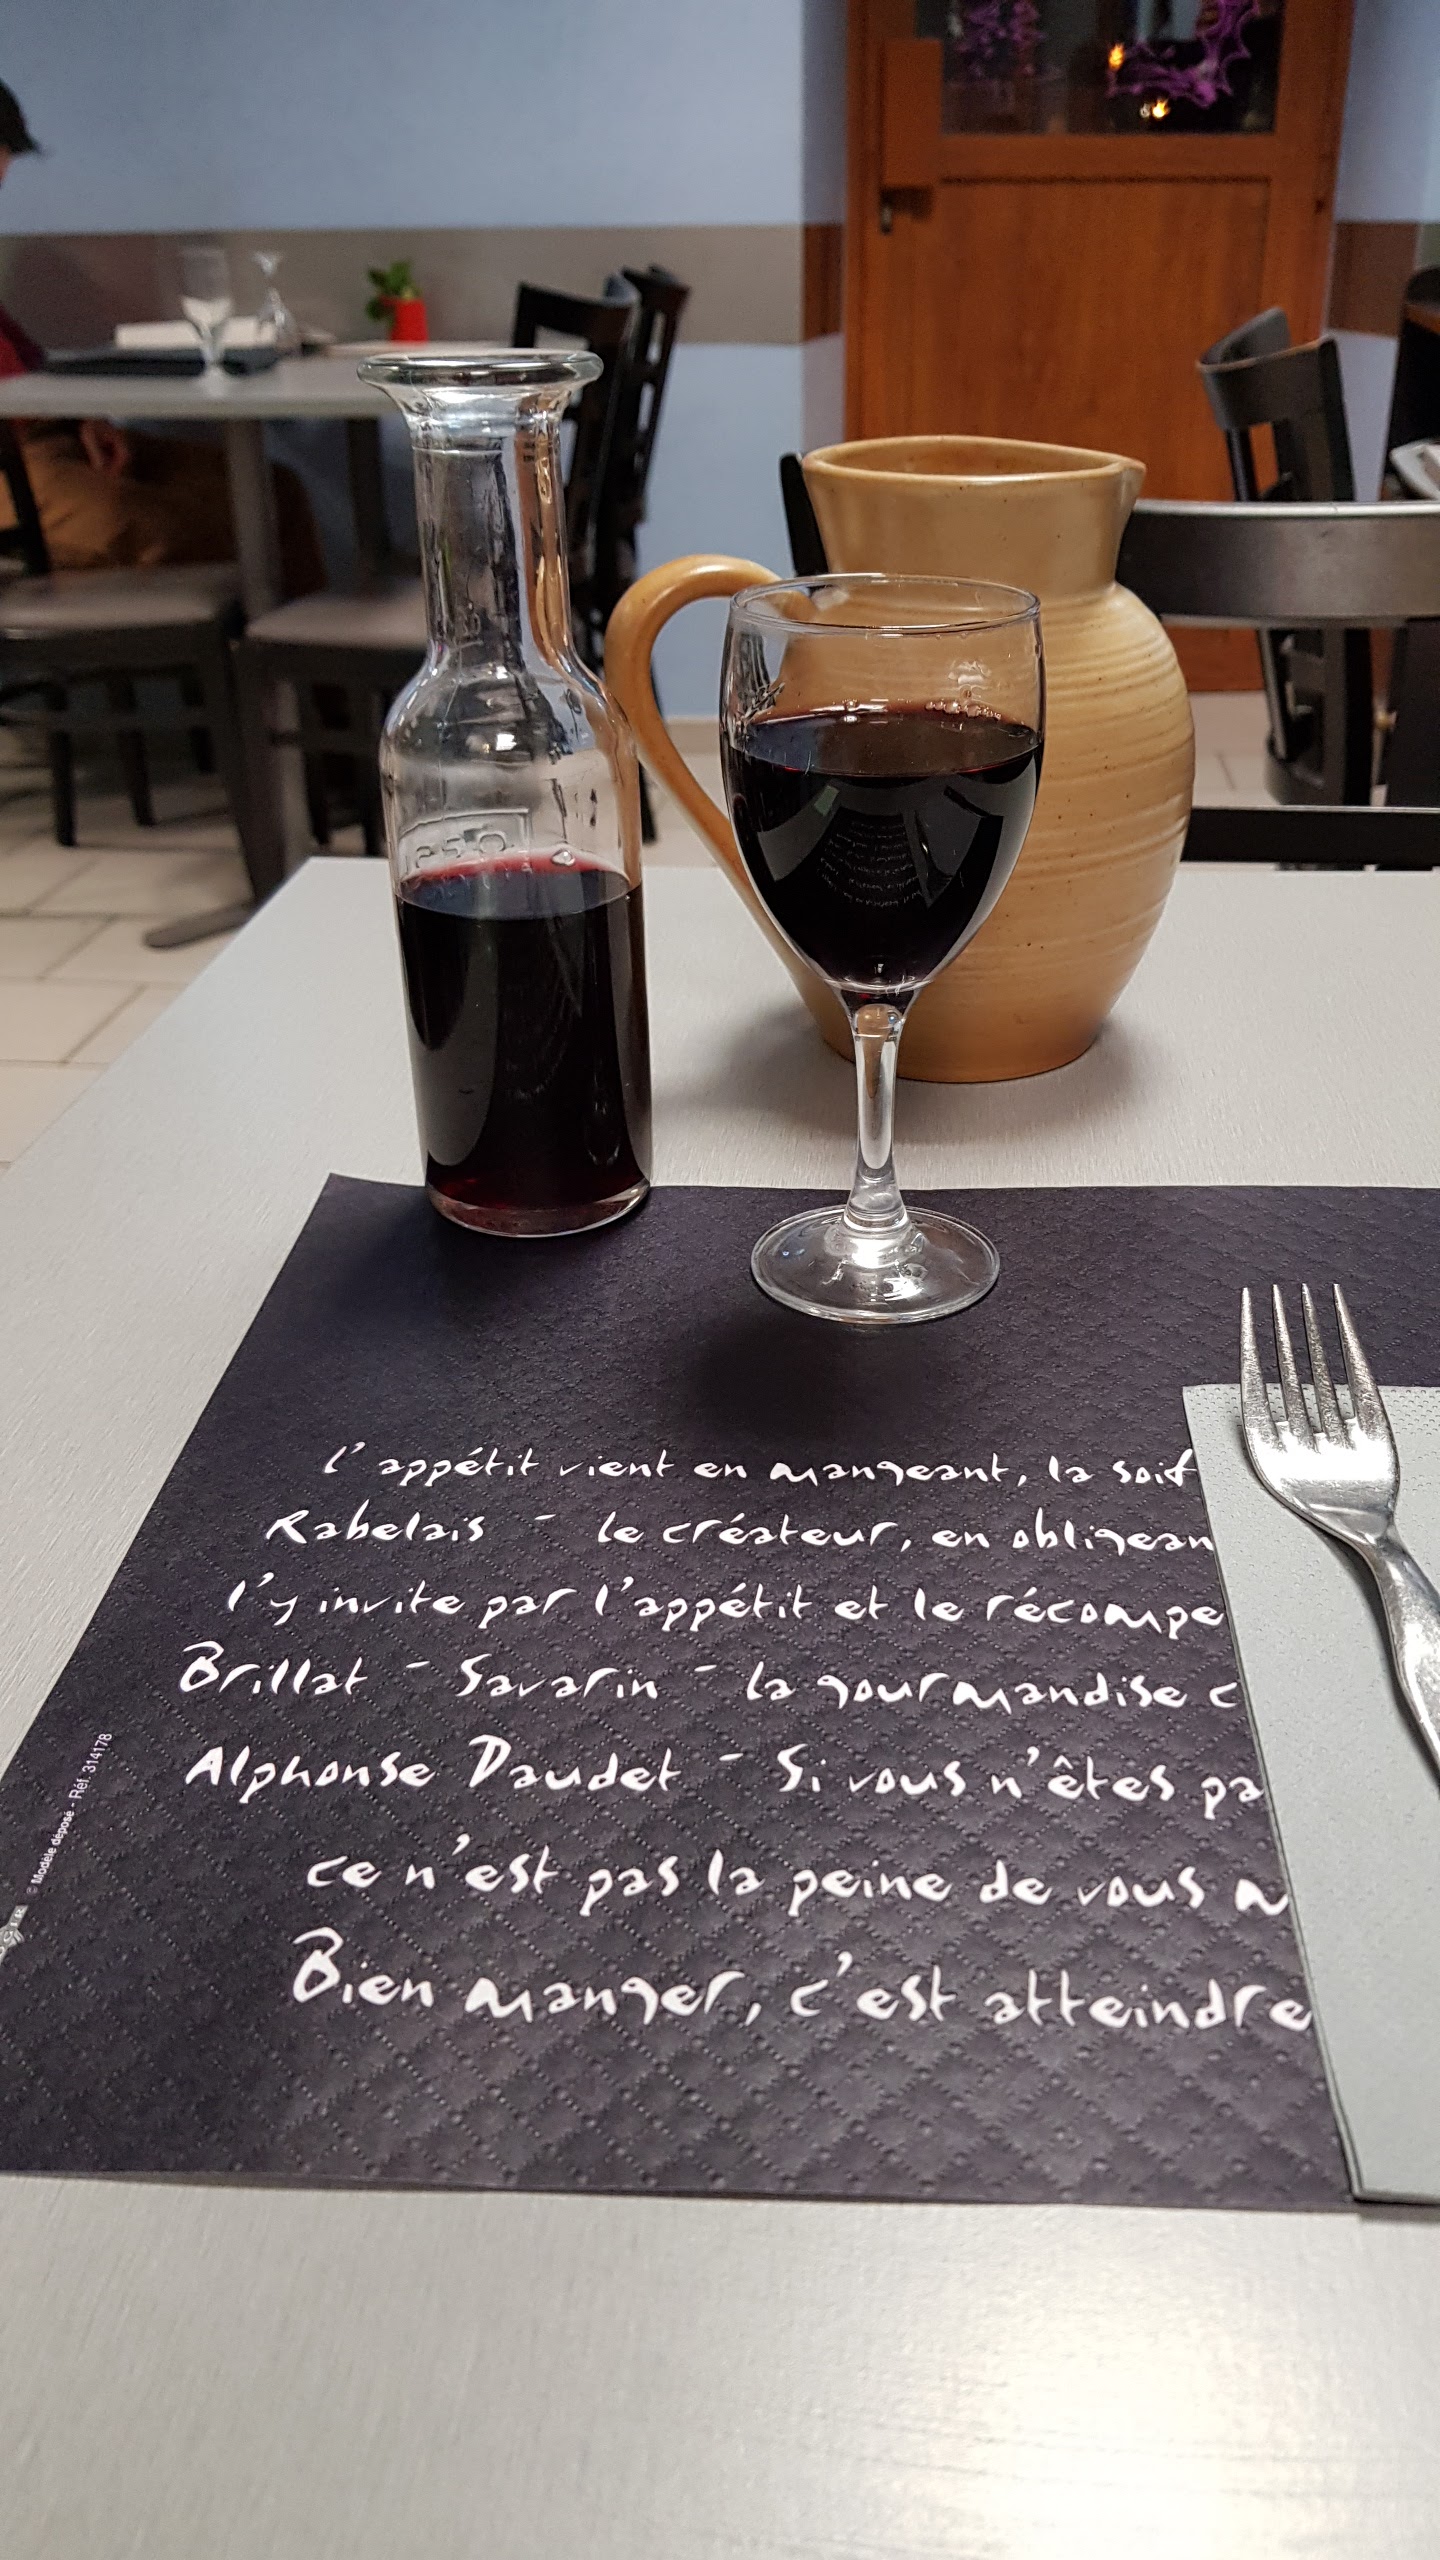 l'appétit vient en mangeant, la soif
Rabelais - le créateur, en obligean
l'y invite par l'appétit et le récompe
Brillat - Savarin - la gourmandise c
Alphonse Daudet - Si vous n'êtes pa
ce n'est pas la peine de vous m
Bien manger, c'est atteindre
© Modèle déposé - Réf. 314178